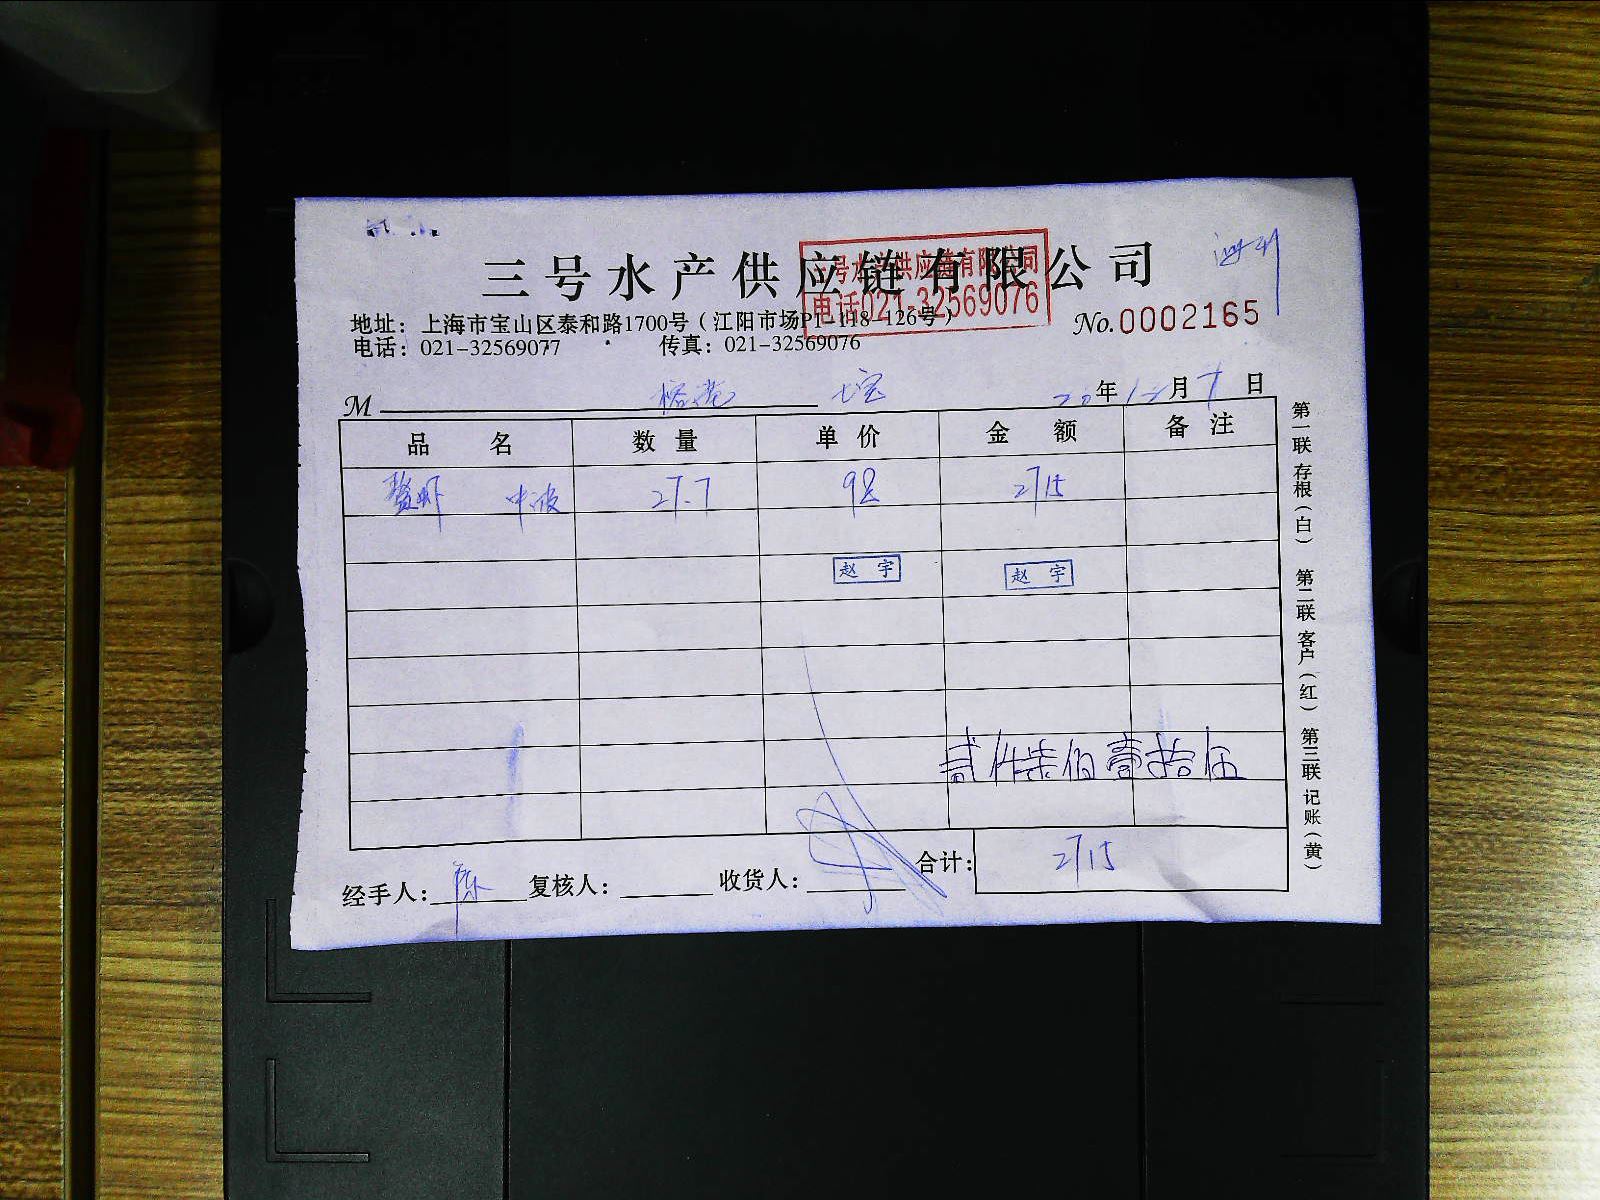 三号水产供应链有限公司
三号水产供应链有限公司
电话021-32569076
地址：上海市宝山区泰和路1700号（江阳市场P1-118-126号）
No.0002165
电话：021-32569077 传真：021-32569076
M 年 12月 7日
品名 数量 单价 金额 备注
27.7 98 2715
赵宇 赵宇
贰仟柒佰壹拾伍
合计：2715
经手人：陈 复核人： 收货人：
第一联 存根（白） 第二联 客户（红） 第三联 记账（黄）